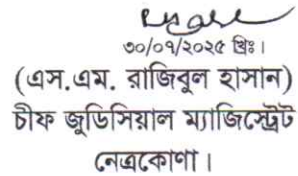 ৩০/০৭/২০২৫ খ্রিঃ।
(এস.এম. রাজিবুল হাসান)
চীফ জুডিসিয়াল ম্যাজিস্ট্রেট
নেত্রকোণা।